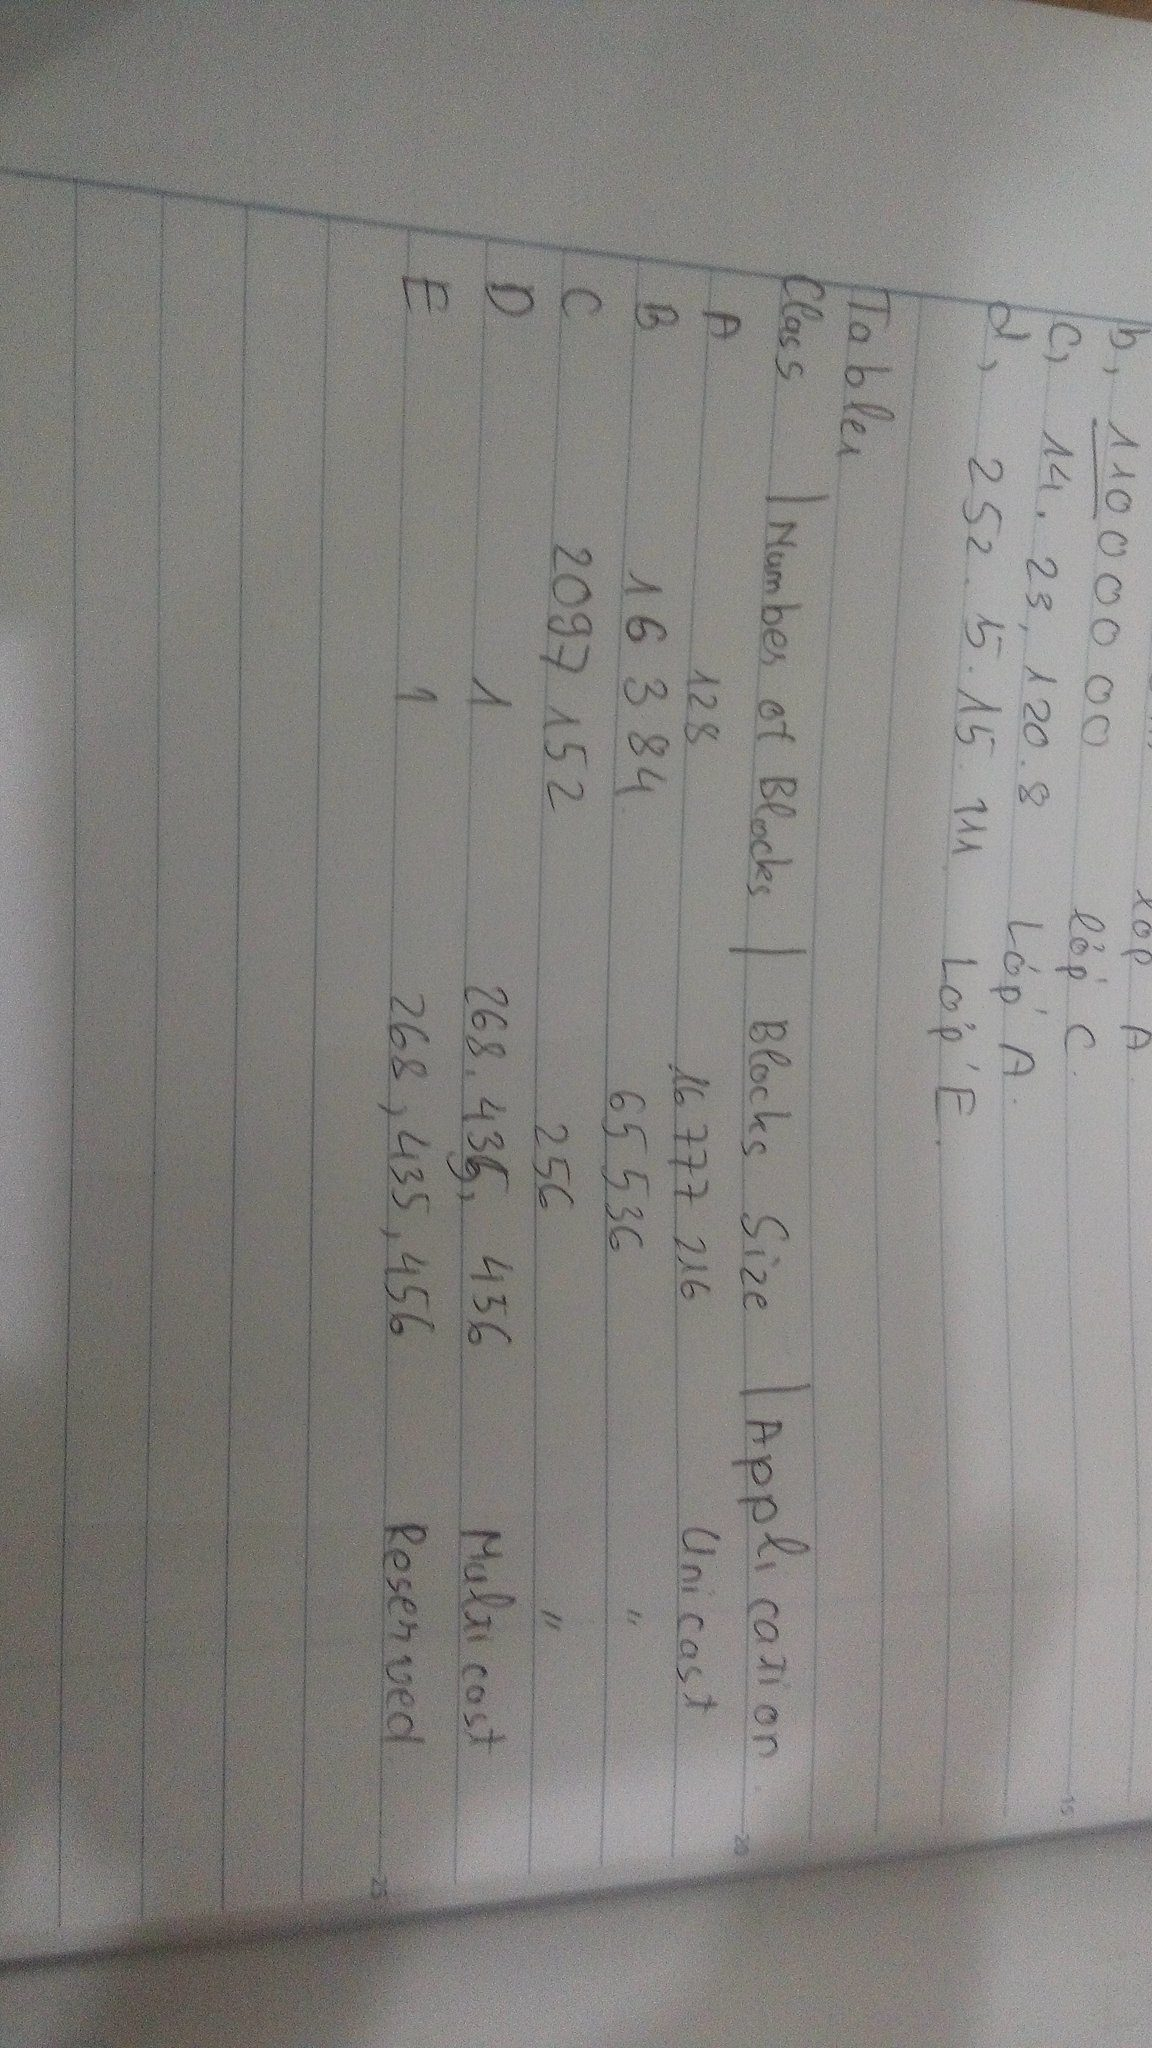 lớp A
b, 11000000 lớp C.
c, 14.23,120.8 Lớp A.
d, 252.15.15.111 Lớp E.
Table1
Class | Number of Blocks | Blocks Size | Application
A 128 16 777 216 Unicast
B 16 384 65 536 "
C 2097 152 256 "
D 1 268,435, 456 Multicast
E 1 268,435,456 Reserved
15
20
25